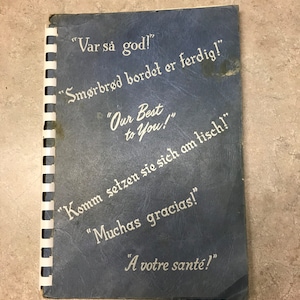 "Var så god!"
"Smørbrød bordet er ferdig!"
"Our Best
to You!"
"Komm setzen sie sich am tisch!"
"Muchas gracias!"
"A votre santé!"